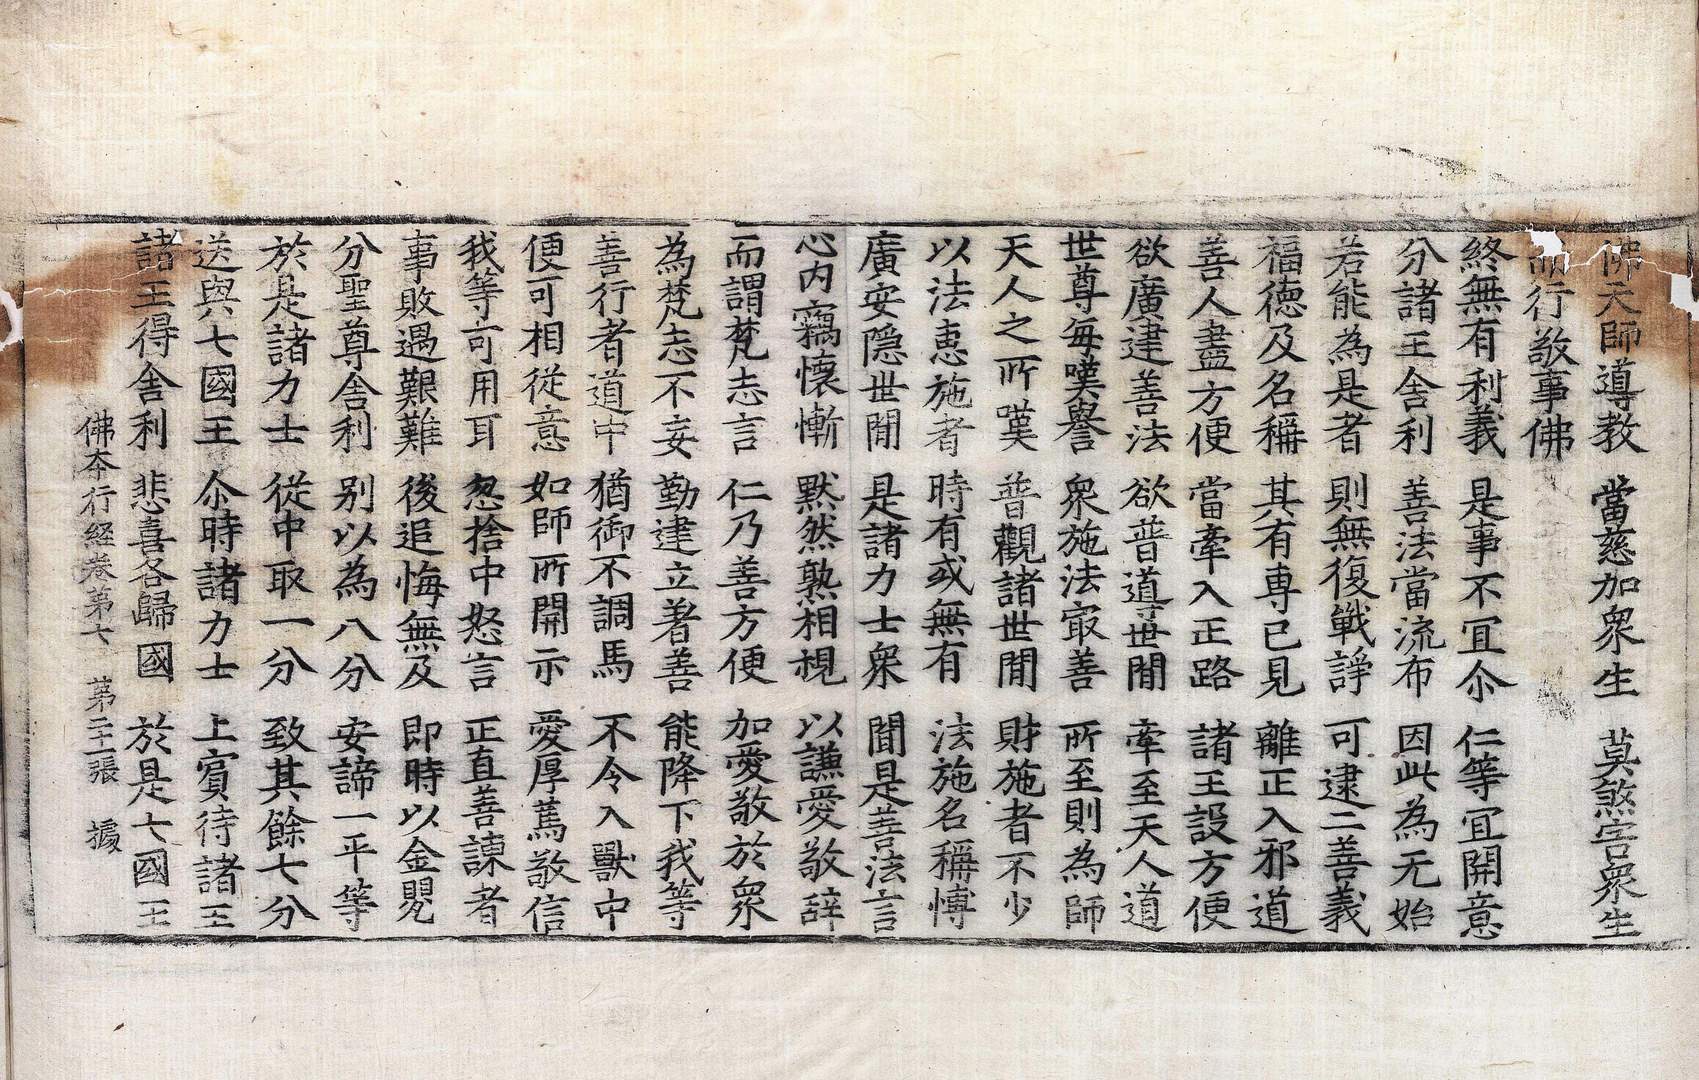 佛天師導教　當慈加衆生　莫煞害衆生
而行敬事佛
終無有利義　是事不冝尒　仁等冝開意
分諸王舍利　善法當流布　因此為无始
若能為是者　則無復戰諍　可逮二善義
福德及名稱　其有專已見　離正入邪道
善人盡方便　當牽入正路　諸王設方便
欲廣建善法　欲普導世閒　牽至天人道
世尊每嘆譽　衆施法㝡善　所至則為師
天人之所嘆　普觀諸世閒　財施者不少
以法恵施者　時有或無有　法施名稱博
廣安隠世閒　是諸力士衆　聞是善法言
心内竊懷慚　默然熟相視　以謙愛敬辞
而謂梵志言　仁乃善方便　加愛敬於衆
為梵志不妄　勤建立著善　能降下我等
善行者道中　猶御不調馬　不令入獸中
便可相從意　如師所開示　愛厚篤敬信
我等可用耳　忽捨中怒言　正直善諫者
事敗遇艱難　後追悔無及　即時以金甖
分聖尊舍利　別以為八分　安諦一平等
於是諸力士　從中取一分　致其餘七分
送與七國王　尒時諸力士　上賔待諸王
諸王得舍利　悲喜各歸國　於是七國王
佛夲行經卷第七　第二十一張　據